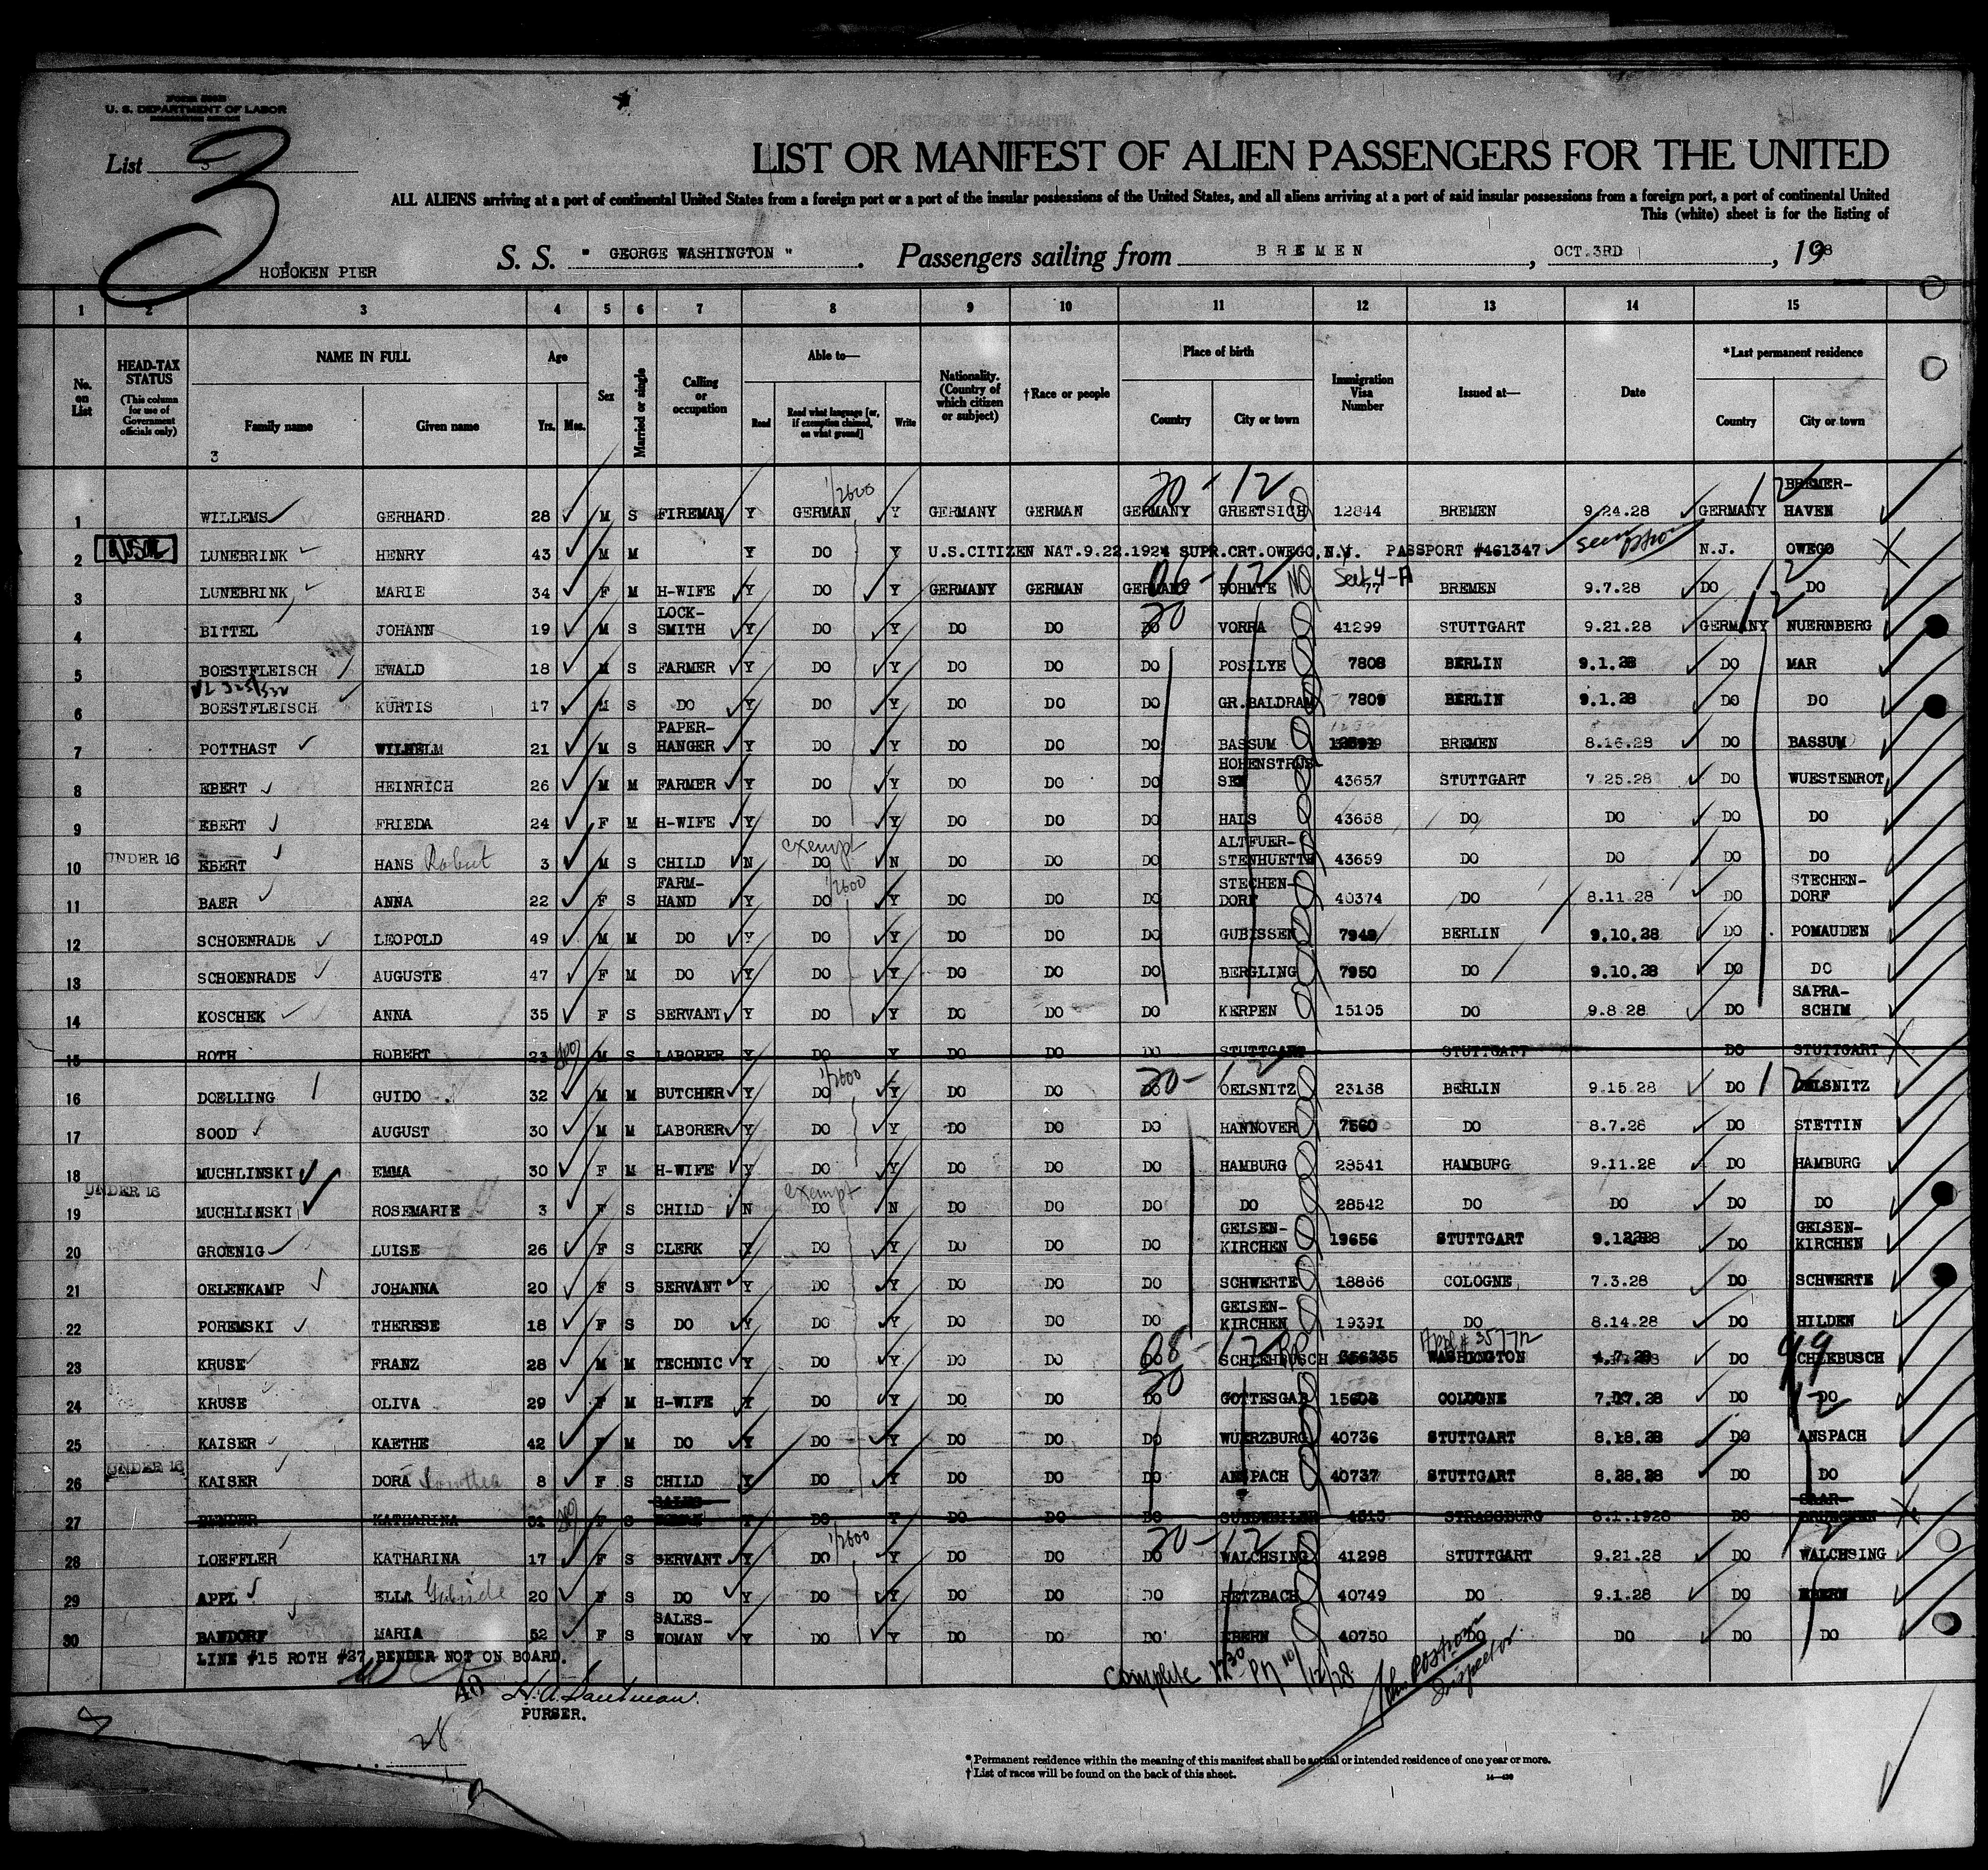 U. S. DEPARTMENT OF LABOR
List 3
3
LIST OR MANIFEST OF ALIEN PASSENGERS FOR THE UNITED
ALL ALIENS arriving at a port of continental United States from a foreign port or a port of the insular possessions of the United States, and all aliens arriving at a port of said insular possessions from a foreign port, a port of continental United
This (white) sheet is for the listing of
HOBOKEN PIER S. S. " GEORGE WASHINGTON " . Passengers sailing from BREMEN , OCT.3RD , 1928
1 2 3 4 5 6 7 8 9 10 11 12 13 14 15
No. on List HEAD-TAX STATUS (This column for use of Government officials only) NAME IN FULL Family name Given name Age Yrs. Mos. Sex Married or single Calling or occupation Able to— Read Read what language [or, if exemption claimed, on what ground] Write Nationality. (Country of which citizen or subject) †Race or people Place of birth Country City or town Immigration Visa Number Issued at— Date *Last permanent residence Country City or town
3
20-12 12
1 WILLEMS GERHARD 28 M S FIREMAN Y GERMAN 1/2600 Y GERMANY GERMAN GERMANY GREETSICH 12844 BREMEN 9.24.28 GERMANY BREMER-HAVEN
2 LUNEBRINK HENRY 43 M M Y DO Y U.S.CITIZEN NAT.9.22.1924 SUPR.CRT.OWEGO,N.Y. PASSPORT #461347 N.J. OWEGO
3 LUNEBRINK MARIE 34 F M H-WIFE Y DO Y GERMANY GERMAN GERMANY BOHMTE NQ Sec.4-A 77 BREMEN 9.7.28 DO DO
4 BITTEL JOHANN 19 M S LOCK-SMITH Y DO Y DO DO DO VORRA 41299 STUTTGART 9.21.28 GERMANY NUERNBERG
5 BOESTFLEISCH EWALD 18 M S FARMER Y DO Y DO DO DO POSILYE 7808 BERLIN 9.1.28 DO MAR
6 BOESTFLEISCH KURTIS 17 M S DO Y DO Y DO DO DO GR.BALDRAM 7809 BERLIN 9.1.28 DO DO
7 POTTHAST WILHELM 21 M S PAPER-HANGER Y DO Y DO DO DO BASSUM BREMEN 8.16.28 DO BASSUM
8 EBERT HEINRICH 26 M M FARMER Y DO Y DO DO DO 43657 STUTTGART 7.25.28 DO WUESTENROT
9 EBERT FRIEDA 24 F M H-WIFE Y DO Y DO DO DO HALS 43658 DO DO DO DO
10 UNDER 16 EBERT HANS Robert 3 M S CHILD N exempt DO N DO DO DO ALTFUER-STENHUETTE 43659 DO DO DO DO
11 BAER ANNA 22 F S FARM-HAND Y DO 1/2600 Y DO DO DO STECHEN-DORF 40374 DO 8.11.28 DO STECHEN-DORF
12 SCHOENRADE LEOPOLD 49 M M DO Y DO Y DO DO DO GUBISSEN 7949 BERLIN 9.10.28 DO POMAUDEN
13 SCHOENRADE AUGUSTE 47 F M DO Y DO Y DO DO DO BERGLING 7950 DO 9.10.28 DO DO
14 KOSCHEK ANNA 35 F S SERVANT Y DO Y DO DO DO KERPEN 15105 DO 9.8.28 DO SAPRA-SCHIM
15 ROTH ROBERT 23 M S LABORER Y DO Y DO DO DO STUTTGART STUTTGART DO STUTTGART
16 DOELLING GUIDO 32 M M BUTCHER Y DO 1/2600 Y DO DO DO 20-12 OELSNITZ 23168 BERLIN 9.15.28 DO 12 OELSNITZ
17 SOOD AUGUST 30 M M LABORER Y DO Y DO DO DO HANNOVER 7560 DO 8.7.28 DO STETTIN
18 MUCHLINSKI EMMA 30 F M H-WIFE Y DO Y DO DO DO HAMBURG 28541 HAMBURG 9.11.28 DO HAMBURG
19 UNDER 16 MUCHLINSKI ROSEMARIE 3 F S CHILD N exempt DO N DO DO DO DO 28542 DO DO DO DO
20 GROENIG LUISE 26 F S CLERK Y DO Y DO DO DO GELSEN-KIRCHEN 19656 STUTTGART DO GELSEN-KIRCHEN
21 OELENKAMP JOHANNA 20 F S SERVANT Y DO Y DO DO DO SCHWERTE 18866 COLOGNE 7.3.28 DO SCHWERTE
22 POREMSKI THERESE 18 F S DO Y DO Y DO DO DO GELSEN-KIRCHEN 19391 DO 8.14.28 DO HILDEN
23 KRUSE FRANZ 28 M M TECHNIC Y DO Y DO DO DO SCHLEHBUSCH WASHINGTON DO SCHLEBUSCH
24 KRUSE OLIVA 29 F M H-WIFE Y DO Y DO DO DO GOTTESGAB COLOGNE DO DO
25 KAISER KAETHE 42 F M DO Y DO Y DO DO DO WUERZBURG 40736 STUTTGART 8.18.28 DO ANSPACH
26 UNDER 16 KAISER DORA Dorothea 8 F S CHILD Y DO Y DO DO DO ANSPACH 40737 STUTTGART 8.28.28 DO DO
27 BENDER KATHARINA 31 F S SALES- Y DO Y DO DO DO STRASSBURG 8.1.1928 DO SAAR-BRUECKEN
28 LOEFFLER KATHARINA 17 F S SERVANT Y DO 1/2600 Y DO DO DO 20-12 WALCHSING 41298 STUTTGART 9.21.28 DO 12 WALCHSING
29 APPL ELLA 20 F S DO Y DO Y DO DO DO RETZBACH 40749 DO 9.1.28 DO EBERN
30 BANDORF MARIA 52 F S SALES-WOMAN Y DO Y DO DO DO EBERN 40750 DO DO DO DO
LINE #15 ROTH #27 BENDER NOT ON BOARD.
Complete 12 30 PM 10/12/28 Inspector.
40
PURSER.
28
* Permanent residence within the meaning of this manifest shall be actual or intended residence of one year or more.
† List of races will be found on the back of this sheet.